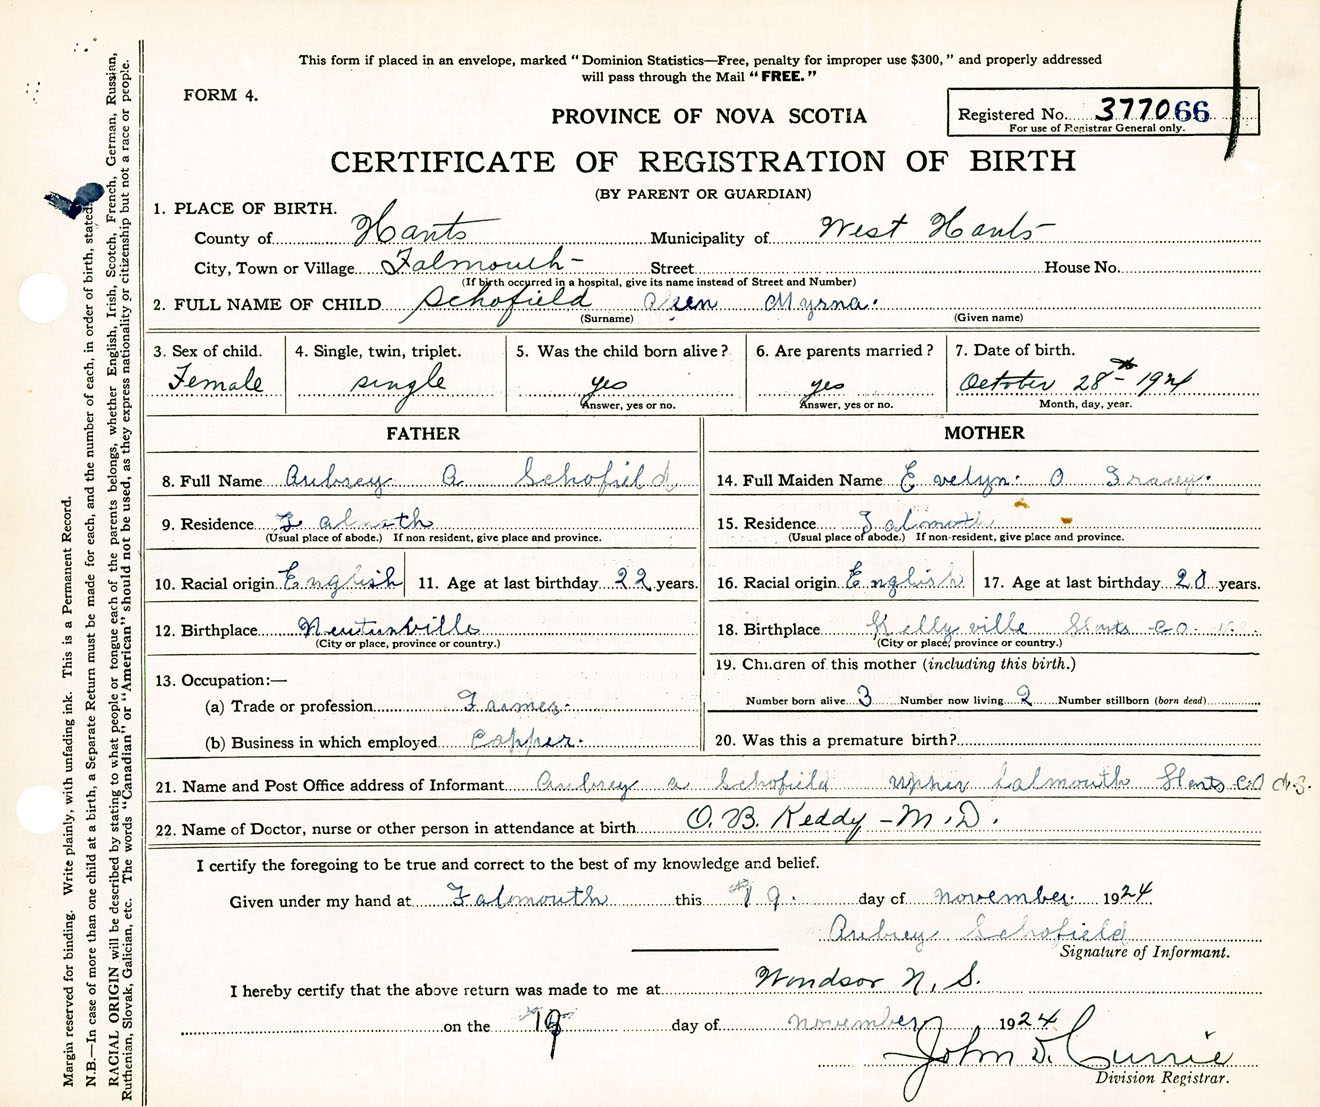 This form if placed in an envelope, marked "Dominion Statistics—Free, penalty for improper use $300," and properly addressed
will pass through the Mail "FREE."
FORM 4.
PROVINCE OF NOVA SCOTIA
Registered No. 377066
For use of Registrar General only.
CERTIFICATE OF REGISTRATION OF BIRTH
(BY PARENT OR GUARDIAN)
1. PLACE OF BIRTH.
County of Hants Municipality of West Hants
City, Town or Village Falmouth Street House No.
(If birth occurred in a hospital, give its name instead of Street and Number)
2. FULL NAME OF CHILD Schofield Myrna.
(Surname) (Given name)
3. Sex of child. 4. Single, twin, triplet. 5. Was the child born alive? 6. Are parents married? 7. Date of birth.
Female single yes yes October 28th 1924
Answer, yes or no. Answer, yes or no. Month, day, year.
FATHER MOTHER
8. Full Name Aubrey A. Schofield 14. Full Maiden Name Evelyn. O
9. Residence Falmoth 15. Residence
(Usual place of abode.) If non resident, give place and province. (Usual place of abode.) If non-resident, give place and province.
10. Racial origin English 11. Age at last birthday 22 years. 16. Racial origin English 17. Age at last birthday 20 years.
12. Birthplace 18. Birthplace Kellyville Hants Co
(City or place, province or country.) (City or place, province or country.)
13. Occupation:— 19. Children of this mother (including this birth.)
(a) Trade or profession Number born alive 3 Number now living 2 Number stillborn (born dead)
(b) Business in which employed 20. Was this a premature birth?
21. Name and Post Office address of Informant Aubrey a Schofield falmouth Hants Co N.S.
22. Name of Doctor, nurse or other person in attendance at birth O. B. Keddy - M. D.
I certify the foregoing to be true and correct to the best of my knowledge and belief.
Given under my hand at Falmouth this 19. day of november. 1924
Aubrey Schofield
Signature of Informant.
I hereby certify that the above return was made to me at Windsor N. S.
on the 19 day of november 1924
John D. Currie
Division Registrar.
Margin reserved for binding. Write plainly, with unfading ink. This is a Permanent Record.
N.B.—In case of more than one child at a birth, a Separate Return must be made for each, and the number of each, in order of birth, stated.
RACIAL ORIGIN will be described by stating to what people or tongue each of the parents belongs, whether English, Irish, Scotch, French, German, Russian,
Ruthenian, Slovak, Galician, etc. The words "Canadian" or "American" should not be used, as they express nationality or citizenship but not a race or people.